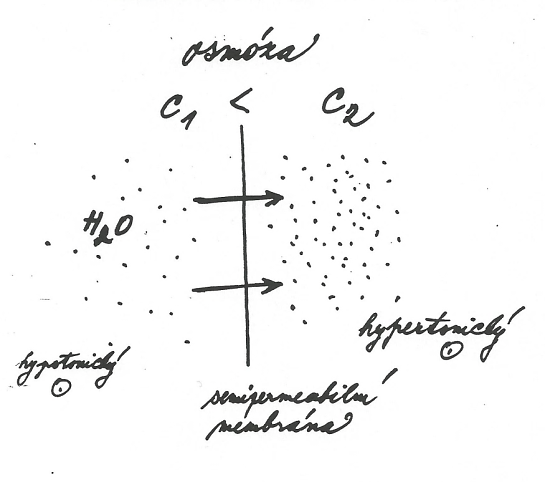 osmóza
C1 < C2
H2O
hypertonický
hypotonický
semipermeabilní
membrána